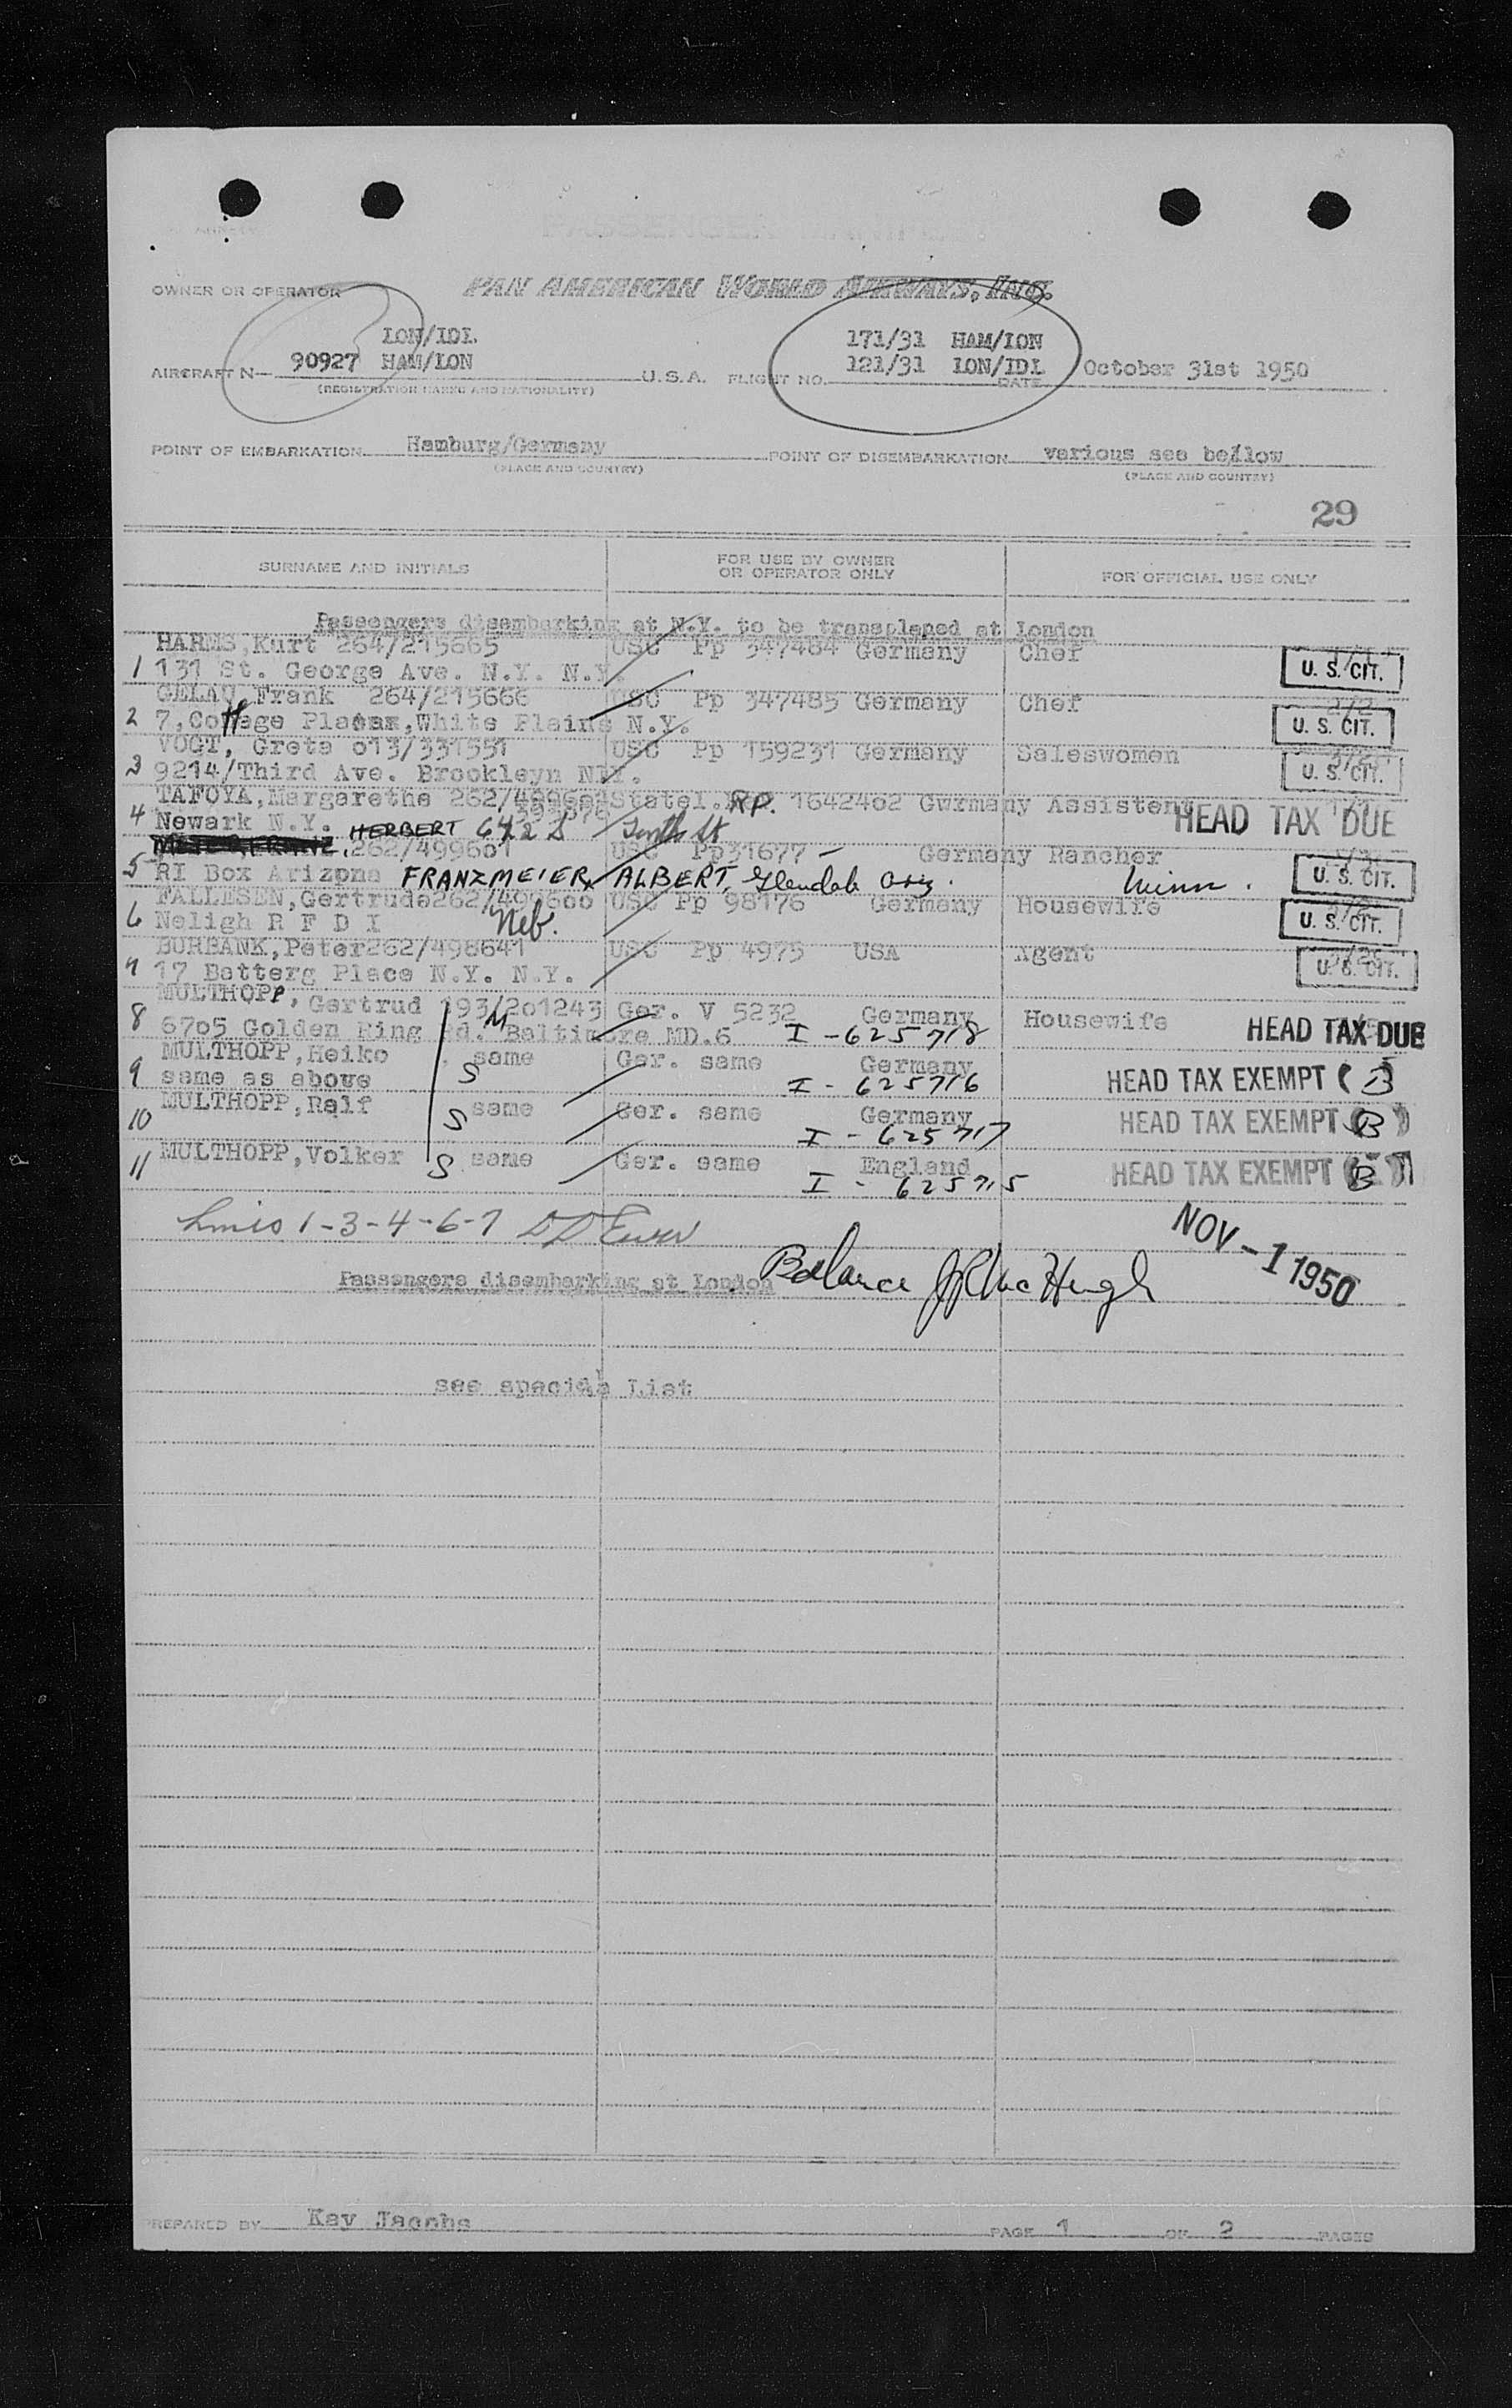 OWNER OR OPERATOR PAN AMERICAN WORLD AIRWAYS, INC.
LON/IDL 171/31 HAM/LON
90927 HAM/LON 121/31 LON/IDL
AIRCRAFT N U.S.A. FLIGHT NO. DATE October 31st 1950
(REGISTRATION MARKS AND NATIONALITY)
POINT OF EMBARKATION Hamburg/Germany POINT OF DISEMBARKATION various see bellow
(PLACE AND COUNTRY) (PLACE AND COUNTRY)
29
SURNAME AND INITIALS FOR USE BY OWNER OR OPERATOR ONLY FOR OFFICIAL USE ONLY
Passengers disembarking at N.Y. to be transplaned at London
HARMS,Kurt 264/215665 USC Pp 347484 Germany Chef
1 131 St. George Ave. N.Y. N.Y. U. S. CIT.
GELAU,Frank 264/215666 USC Pp 347485 Germany Chef 2/2
2 7,Cottage Place,White Plains N.Y. U. S. CIT.
VOGT, Grete 013/331551 USC Pp 159231 Germany Saleswomen
3 9214/Third Ave. Brookleyn N.Y. U. S. CIT.
TAFOYA,Margarethe 262/499601 Statel. RP. 1642402 Gwrmany Assistent
4 Newark N.Y. HERBERT 642 S Tenth St HEAD TAX DUE
262/499601 USC Pp31677 - Germany Rancher
5 RI Box Arizona FRANZMEIER, ALBERT, Glendale Ariz. Minn. U. S. CIT.
FALLESEN,Gertrude262/499600 USC Pp 98176 Germany Housewife
6 Neligh R F D I Neb. U. S. CIT.
BURBANK,Peter262/498641 USC Pp 4975 USA Agent
7 17 Batterg Place N.Y. N.Y. U. S. CIT.
MULTHOPP, Gertrud 193/201243 Ger. V 5232 Germany Housewife
8 6705 Golden Ring Rd. M Baltimore MD.6 I-625718 HEAD TAX DUE
MULTHOPP,Heiko same Ger. same Germany
9 same as above S I - 625716 HEAD TAX EXEMPT (B)
MULTHOPP,Ralf same Ger. same Germany
10 S I - 625717 HEAD TAX EXEMPT (B)
MULTHOPP,Volker same Ger. same England
11 S I - 625715 HEAD TAX EXEMPT (B)
Lines 1-3-4-6-7
NOV - 1 1950
Passengers disembarking at London Balance JR McHugh
see special List
PREPARED BY Kay Jacobs PAGE 1 OF 2 PAGES